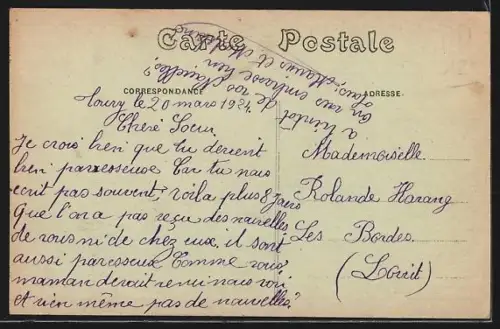 Carte Postale
CORRESPONDANCE
ADRESSE
Toury le 20 mars 1924.
Cheré Soeur
Je crois bien que tu devient
bien paresseuse Car tu nous
ecrit pas souvent, voila plus 8 Jours
Que l'on a pas reçu des nouvelles
de vous ni de chez eux. il sont
aussi paresseux Comme vous
maman devait venir nous voir
et rien même pas de nouvelles?
a bientot de vos Nouvelles?
on vous embrasse bien
tous, Marius et
Mademoiselle.
Rolande Harang
Les Bordes.
(Loirit)